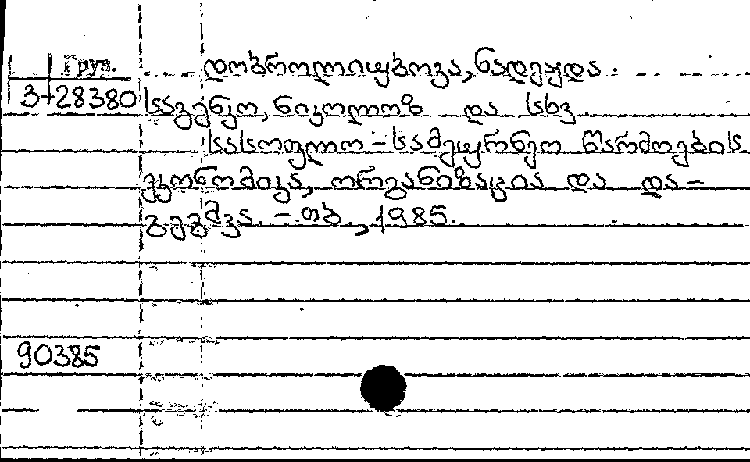 Груз.
დობროლიუბოვა, ნადეჟდა.
3+28380
სავენკო, ნიკოლოზ და სხვ.
სასოფლო-სამეურნეო წარმოების
ეკონომიკა, ორგანიზაცია და და-
გეგმვა. - თბ., 1985.
90385